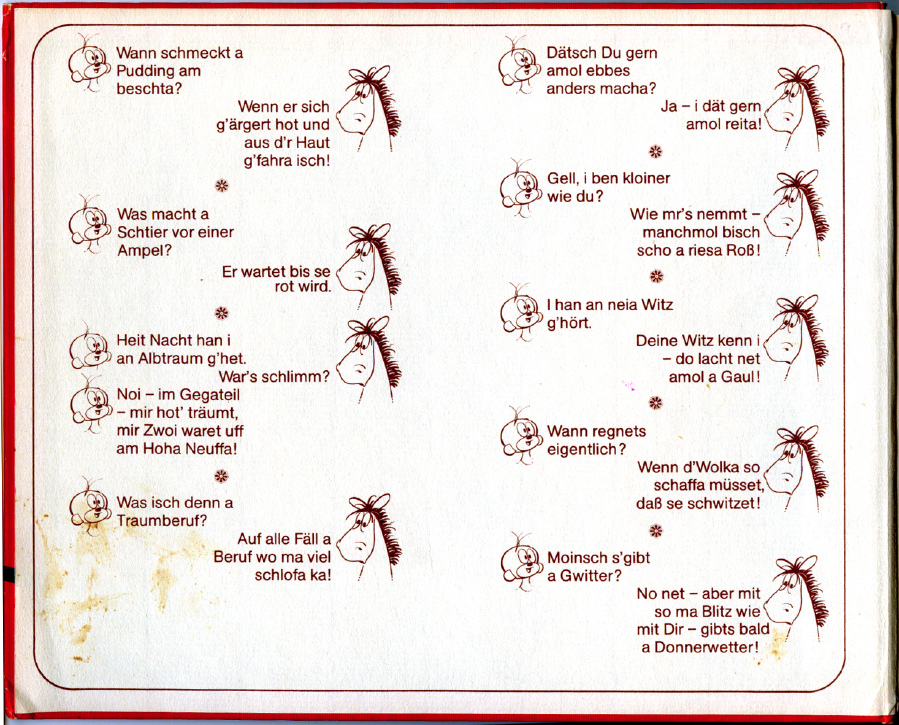 Wann schmeckt a
Pudding am
beschta?
Wenn er sich
g'ärgert hot und
aus d'r Haut
g'fahra isch!
Was macht a
Schtier vor einer
Ampel?
Er wartet bis se
rot wird.
Heit Nacht han i
an Albtraum g'het.
War's schlimm?
Noi – im Gegateil
– mir hot' träumt,
mir Zwoi waret uff
am Hoha Neuffa!
Was isch denn a
Traumberuf?
Auf alle Fäll a
Beruf wo ma viel
schlofa ka!
Dätsch Du gern
amol ebbes
anders macha?
Ja – i dät gern
amol reita!
Gell, i ben kloiner
wie du?
Wie mr's nemmt –
manchmol bisch
scho a riesa Roß!
I han an neia Witz
g'hört.
Deine Witz kenn i
– do lacht net
amol a Gaul!
Wann regnets
eigentlich?
Wenn d'Wolka so
schaffa müsset,
daß se schwitzet!
Moinsch s'gibt
a Gwitter?
No net – aber mit
so ma Blitz wie
mit Dir – gibts bald
a Donnerwetter!